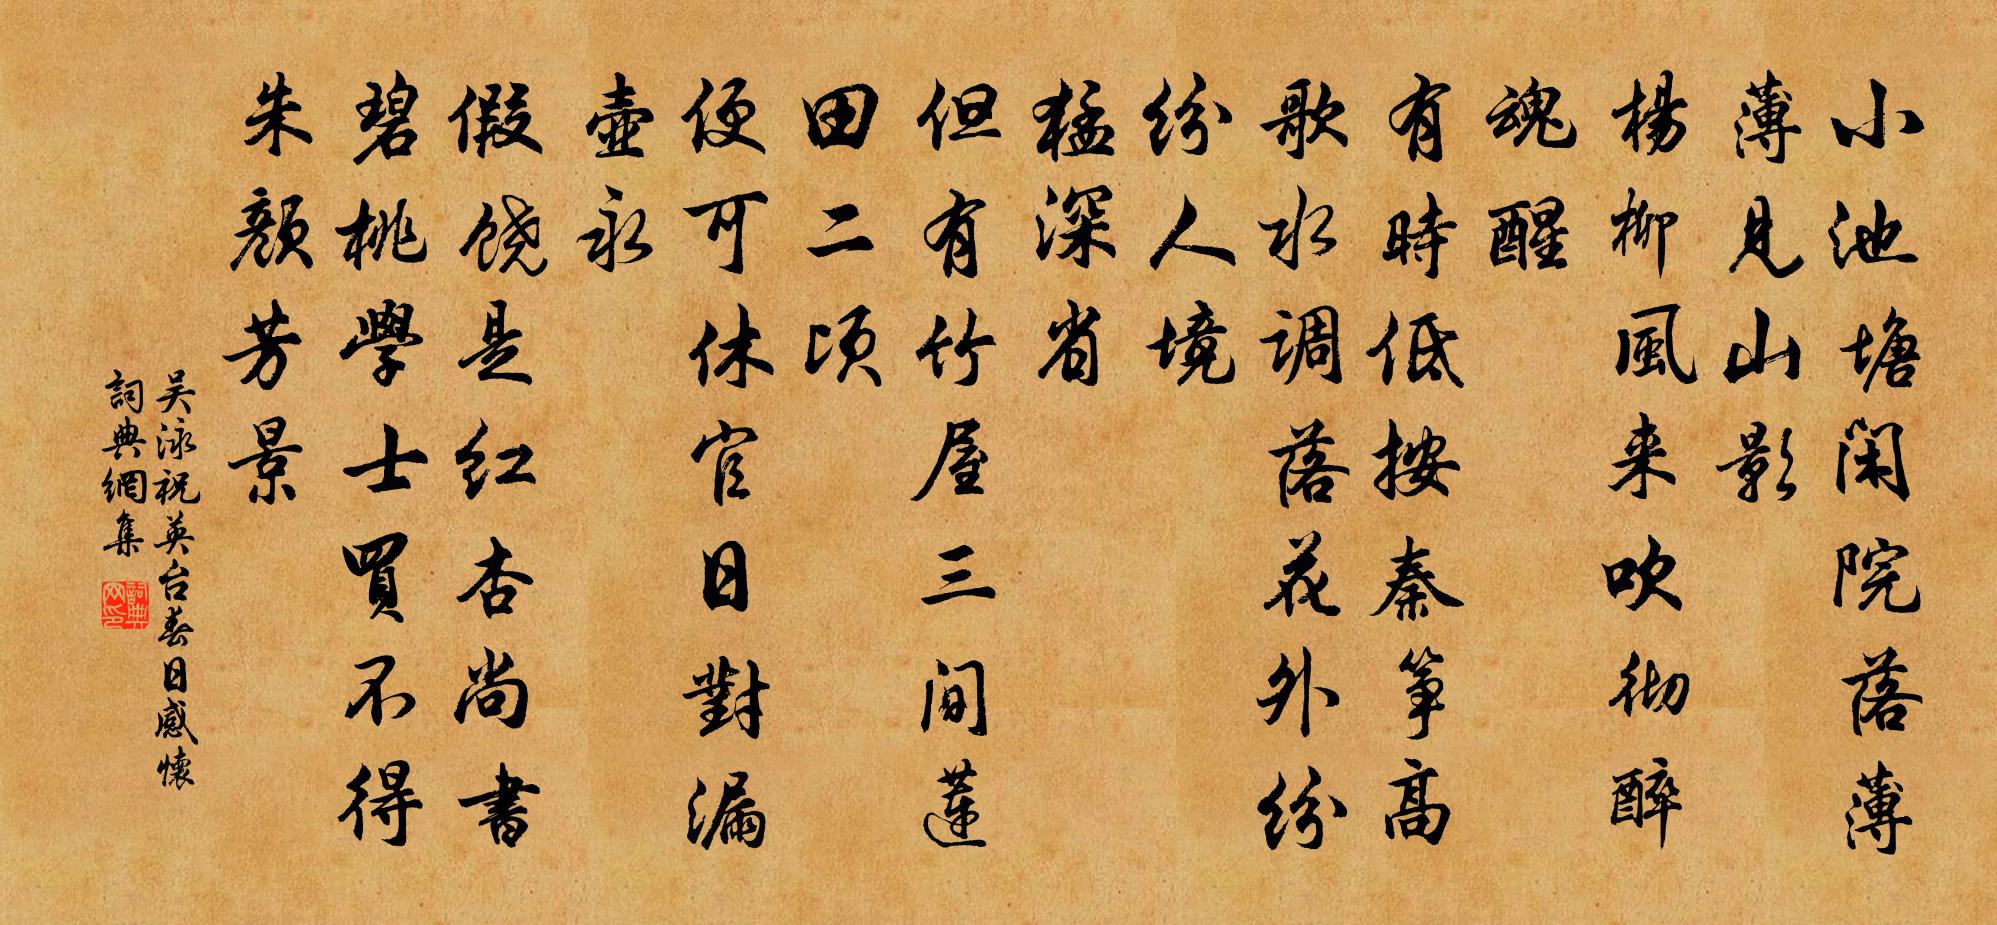 小池塘闲院落薄
薄見山影
楊柳風来吹彻醉
魂醒
有時低按秦筝高
歌水调落花外纷
纷人境
猛深省
但有竹屋三间莲
田二顷
便可休官日對漏
壶永
假饶是红杏尚書
碧桃學士買不得
朱颜芳景
吴泳祝英台春日感懷
詞典網集
詞典
网印